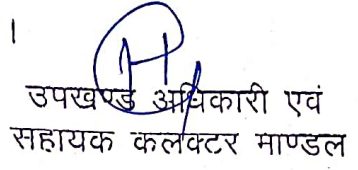 उपखण्ड अधिकारी एवं
सहायक कलक्टर माण्डल